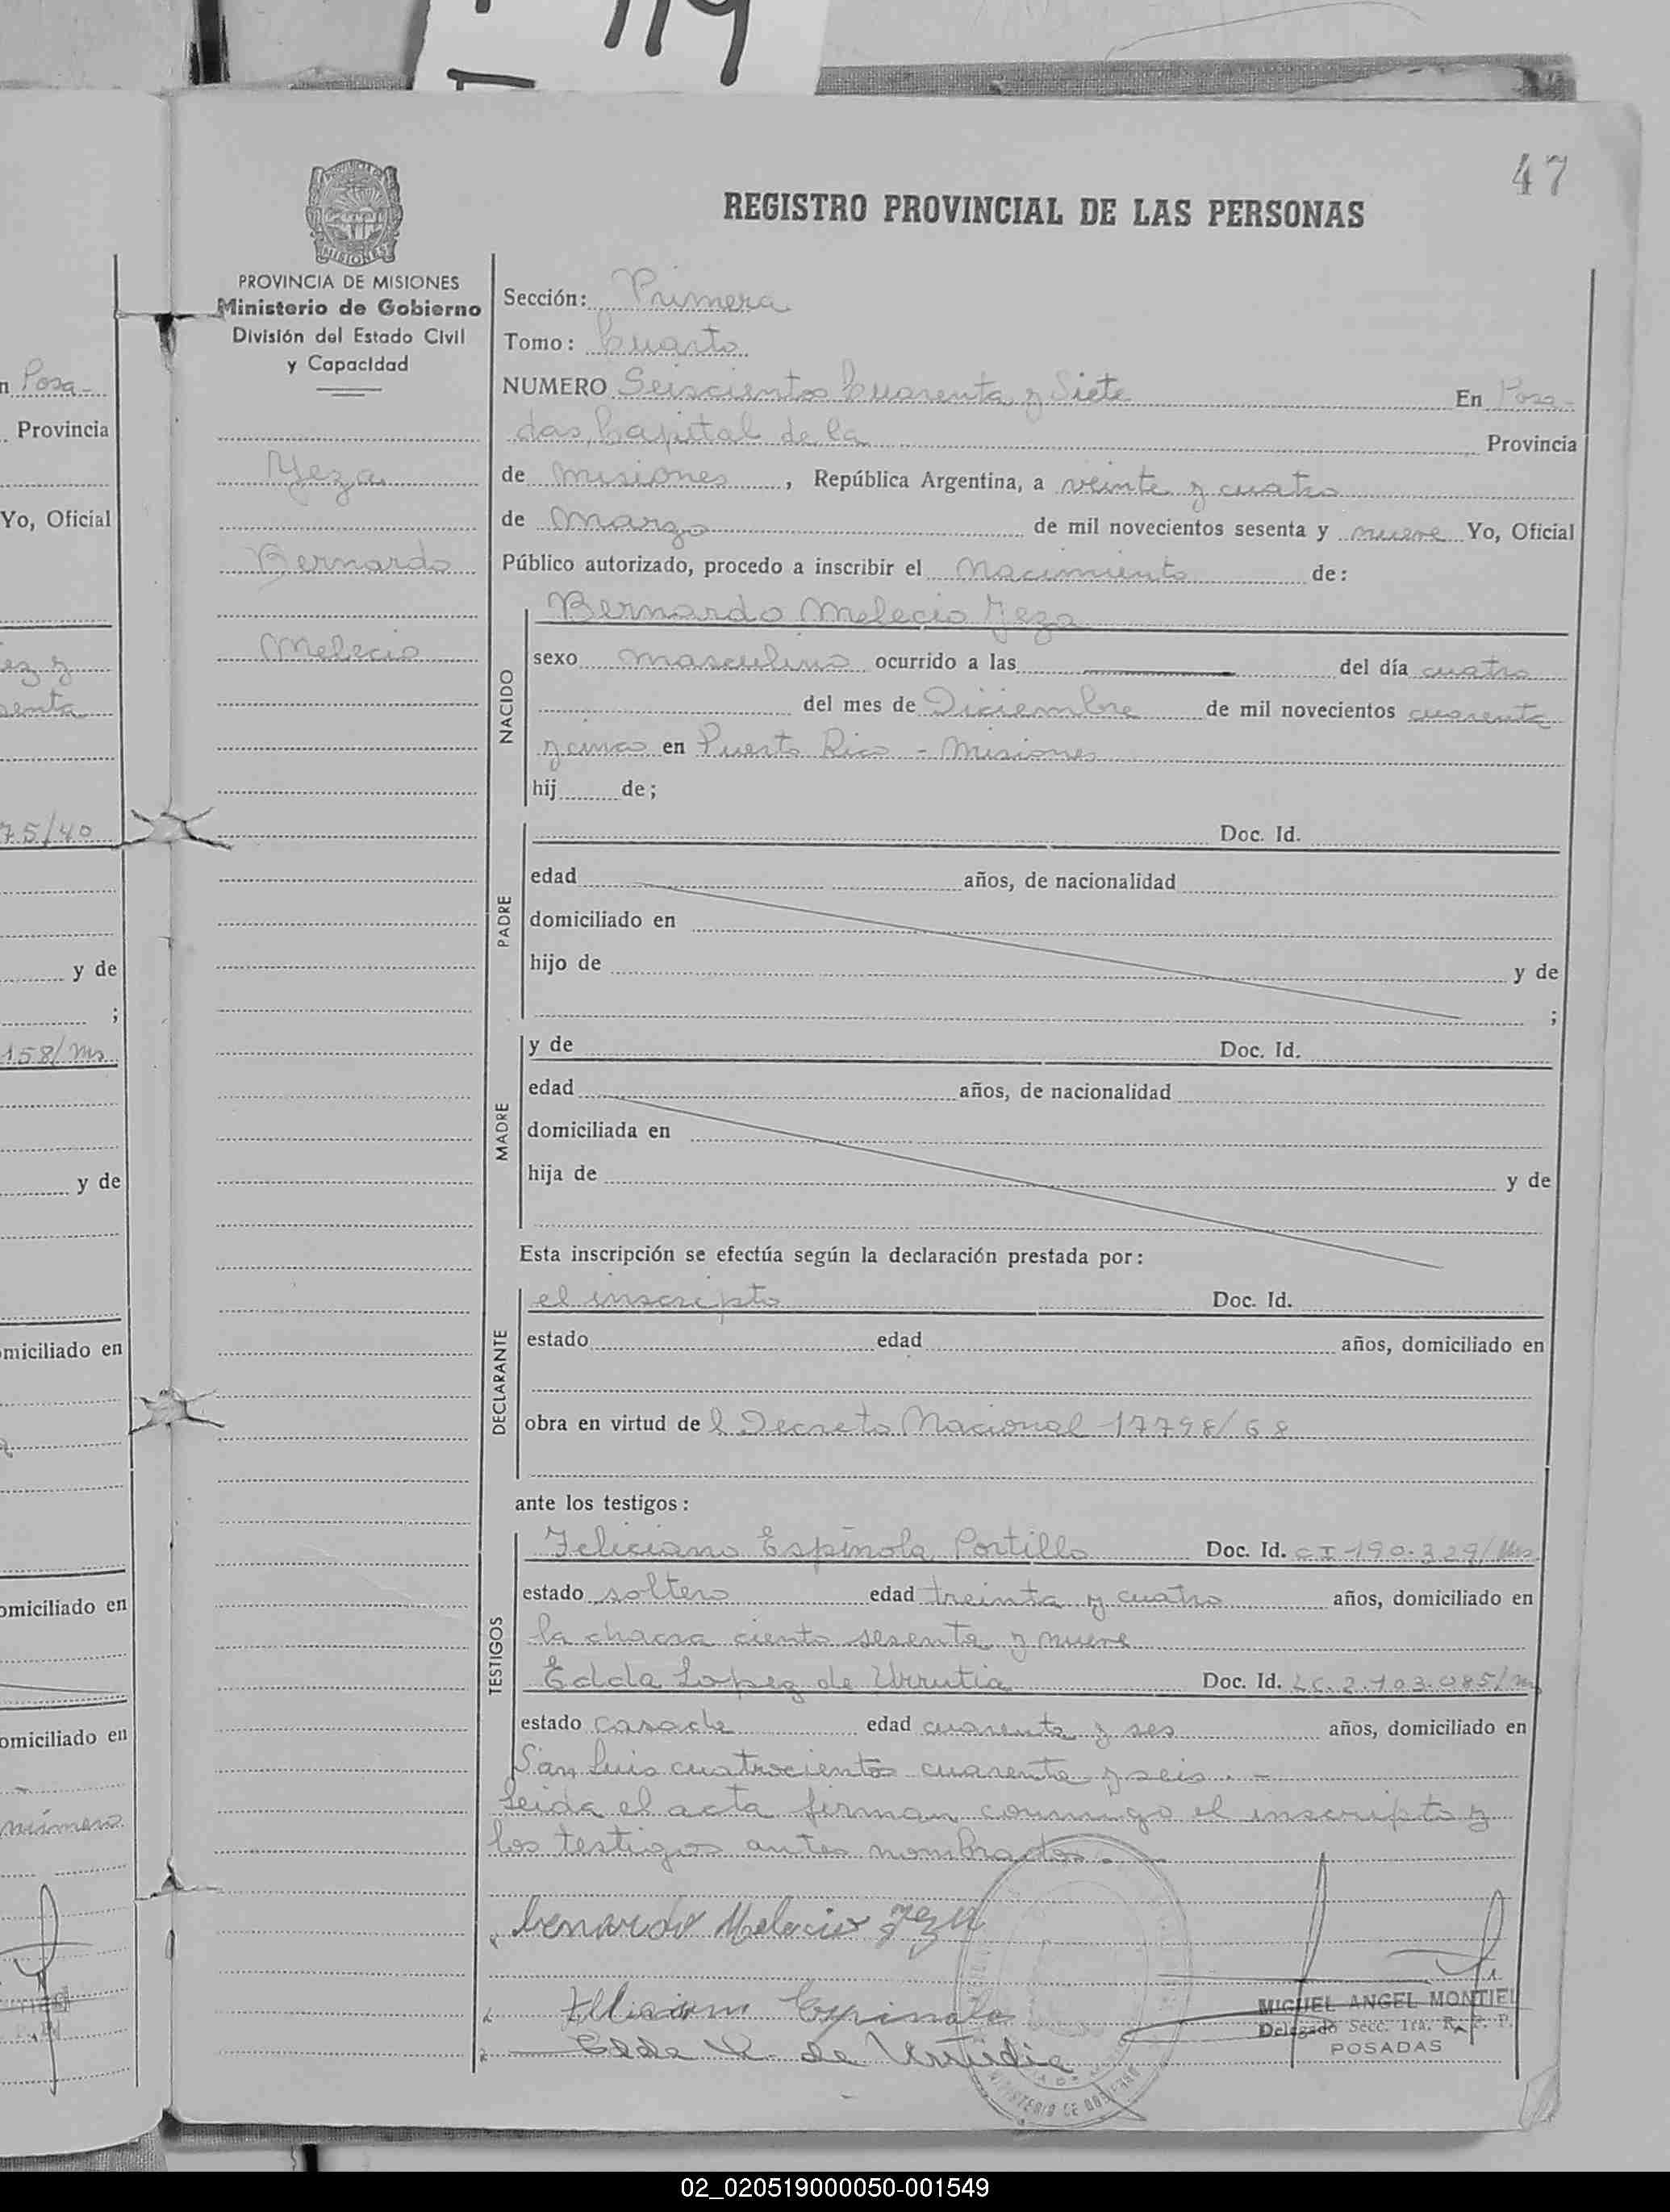 47
REGISTRO PROVINCIAL DE LAS PERSONAS
MISIONES
PROVINCIA DE MISIONES
Ministerio de Gobierno
División del Estado Civil
y Capacidad
Yeza
Bernardo
Melecio
Sección: Primera
Tomo: Cuarto
NUMERO Seiscientos Cuarenta y Siete En Posa-
das, Capital de la Provincia
de Misiones, República Argentina, a veinte y cuatro
de Marzo de mil novecientos sesenta y nueve Yo, Oficial
Público autorizado, procedo a inscribir el Nacimiento de:
NACIDO
Bernardo Melecio Yeza
sexo masculino ocurrido a las del día cuatro
del mes de Diciembre de mil novecientos cuarenta
y cinco en Puerto Rico - Misiones
hij de;
PADRE
Doc. Id.
edad años, de nacionalidad
domiciliado en
hijo de y de
;
MADRE
y de Doc. Id.
edad años, de nacionalidad
domiciliada en
hija de y de
Esta inscripción se efectúa según la declaración prestada por:
DECLARANTE
el inscripto Doc. Id.
estado edad años, domiciliado en
obra en virtud de l Decreto Nacional 17798/68
ante los testigos:
TESTIGOS
Feliciano Espínola Portillo Doc. Id. CI 190.329/Mns
estado soltero edad treinta y cuatro años, domiciliado en
la chacra ciento sesenta y nueve
Edda Lopez de Urrutia Doc. Id. LC. 2.103.085/m
estado casada edad cuarenta y ses años, domiciliado en
San Luis cuatrocientos cuarenta y seis. -
Leida el acta firman conmigo el inscripto y
los testigos antes nombrados. -
benardo Melecio Yeza
Feliciano Espinola
Edda L. de Urrutia
MIGUEL ANGEL MONTIEL
Delegado Secc. 1ra. R. P. P.
POSADAS
MINISTERIO DE GOBIERNO
n Posa-
Provincia
Yo, Oficial
ez y
senta
75/40
y de
;
158/Ms
y de
omiciliado en
omiciliado en
omiciliado en
número
02_020519000050-001549